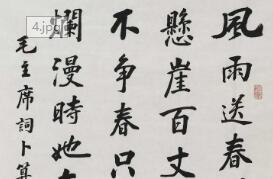 風雨送春
懸崖百丈
不争春只
爛漫時她在
毛主席詞卜算
4.jpg